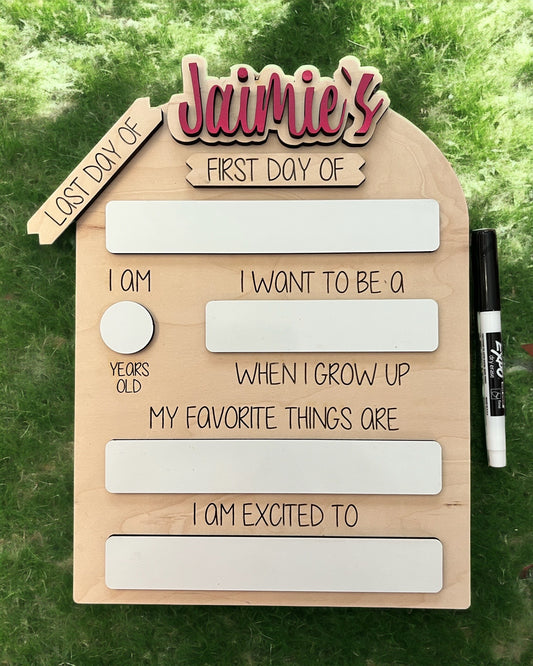 Jaimie's
LAST DAY OF
FIRST DAY OF
I AM
I WANT TO BE A
YEARS
OLD
WHEN I GROW UP
MY FAVORITE THINGS ARE
I AM EXCITED TO
EXPO